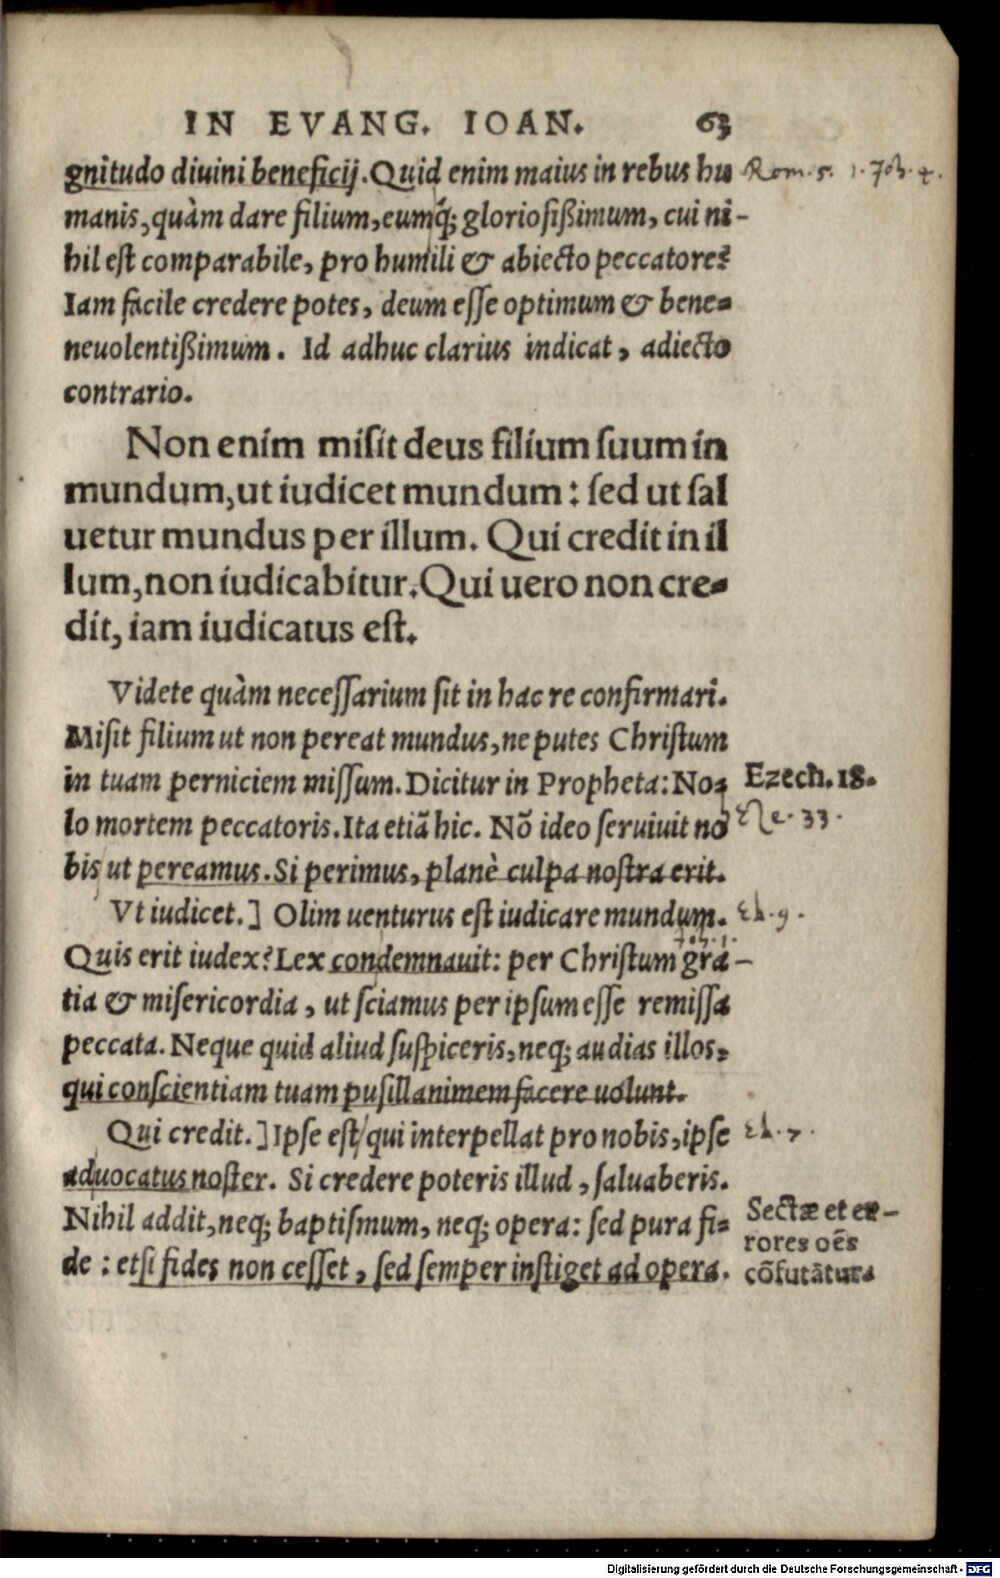 IN EVANG. IOAN. 63
gnitudo diuini beneficij. Quid enim maius in rebus hu
Rom. 5. 1. Joh. 4.
manis, quàm dare filium, eumq́; gloriosißimum, cui ni-
hil est comparabile, pro humili & abiecto peccatore?
Iam facile credere potes, deum esse optimum & bene-
neuolentißimum. Id adhuc clarius indicat, adiecto
contrario.
Non enim misit deus filium suum in
mundum, ut iudicet mundum: sed ut sal
uetur mundus per illum. Qui credit in il
lum, non iudicabitur. Qui uero non cre-
dit, iam iudicatus est.
Videte quàm necessarium sit in hac re confirmari.
Misit filium ut non pereat mundus, ne putes Christum
in tuam perniciem missum. Dicitur in Propheta: No-
Ezech. 18.
lo mortem peccatoris. Ita etiã hic. Nõ ideo seruiuit no
33.
bis ut pereamus. Si perimus, planè culpa nostra erit.
Vt iudicet.] Olim uenturus est iudicare mundum.
9.
Joh. 1.
Quis erit iudex? Lex condemnauit: per Christum gra-
tia & misericordia, ut sciamus per ipsum esse remissa
peccata. Neque quid aliud suspiceris, neq; audias illos,
qui conscientiam tuam pusillanimem facere uolunt.
Qui credit.] Ipse est qui interpellat pro nobis, ipse
7.
aduocatus noster. Si credere poteris illud, saluaberis.
Nihil addit, neq; baptismum, neq; opera: sed pura fi-
Sectæ et er-
rores oẽs
de: etsi fides non cesset, sed semper instiget ad opera.
cõfutãtur.
Digitalisierung gefördert durch die Deutsche Forschungsgemeinschaft - DFG